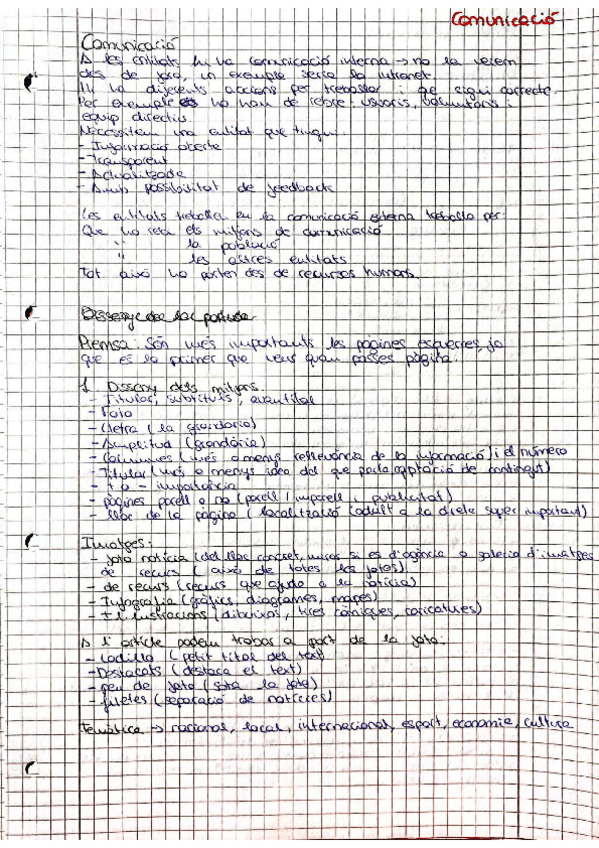 Comunicació
Comunicació
A les entitats hi ha comunicació interna → no la veiem
des de fora, un exemple seria la intranet.
Hi ha diferents accions per treballar i que sigui correcte.
Per exemple ho han de rebre: usuaris, voluntaris i
equip directiu
Necessitem una entitat que tingui:
- Informació oberta
- Transparent
- Actualitzada
- Amb possibilitat de feedback
Les entitats treballen en la comunicació externa treballa per:
Que ho vegi els mitjans de comunicació
" la població
" les altres entitats
Tot això ho porten des de recursos humans.
Disseny de la portada
Premsa: Són més importants les pàgines esquerres, ja
que es la primer que veus quan passes pàgina.
1. Disseny dels mitjans.
- Titular, subtítuls, avantítol
- Foto
- Lletra (la grandària)
- Amplitud (grandària)
- Columnes (més o menys rellevància de la informació) i el número
- Titular (més o menys idea del que parla captació de contingut)
- + o - importància
- pàgines parell o no (parell / imparell i publicitat)
- lloc de la pàgina (localització (adalt a la dreta super important)
Imatges:
- foto notícia (del lloc concret, mirar si es d'agència o galeria d'imatges
de recurs (això de totes les fotos)
- de recurs (recurs que ajuda a la notícia)
- Infografia (gràfics, diagrames, mapes)
- Il·lustracions (dibuixos, tires còmiques, caricatures)
A l'article podem trobar a part de la foto:
- Ladillo (petit títol del text)
- Destacats (destaca el text)
- peu de foto (sota la foto)
- filetes (separació de notícies)
Temàtica → nacional, local, internacional, esport, economia, cultura